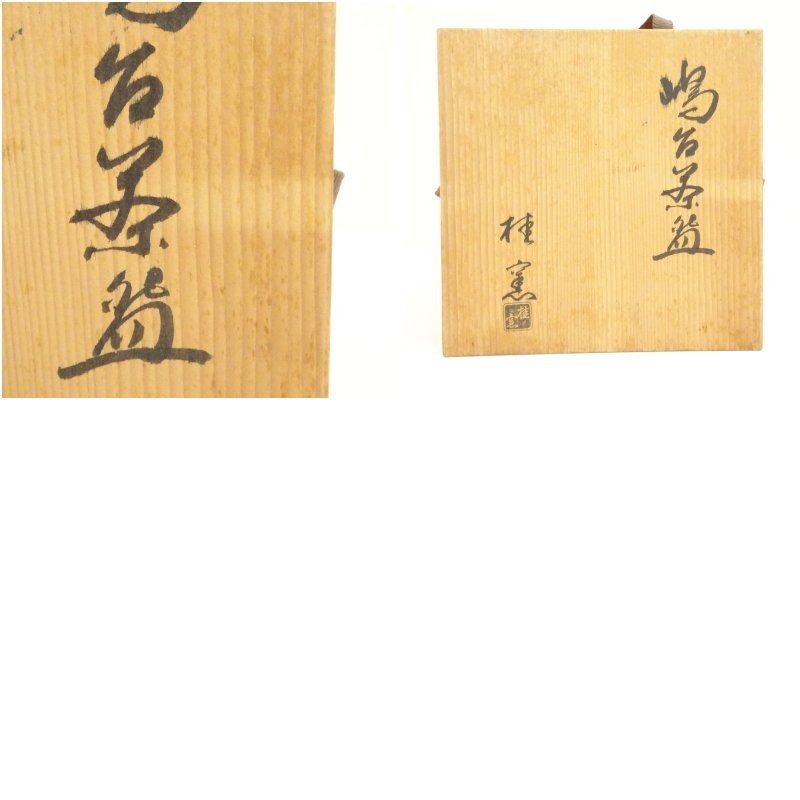 台茶盌
嶋台茶盌
桂窯